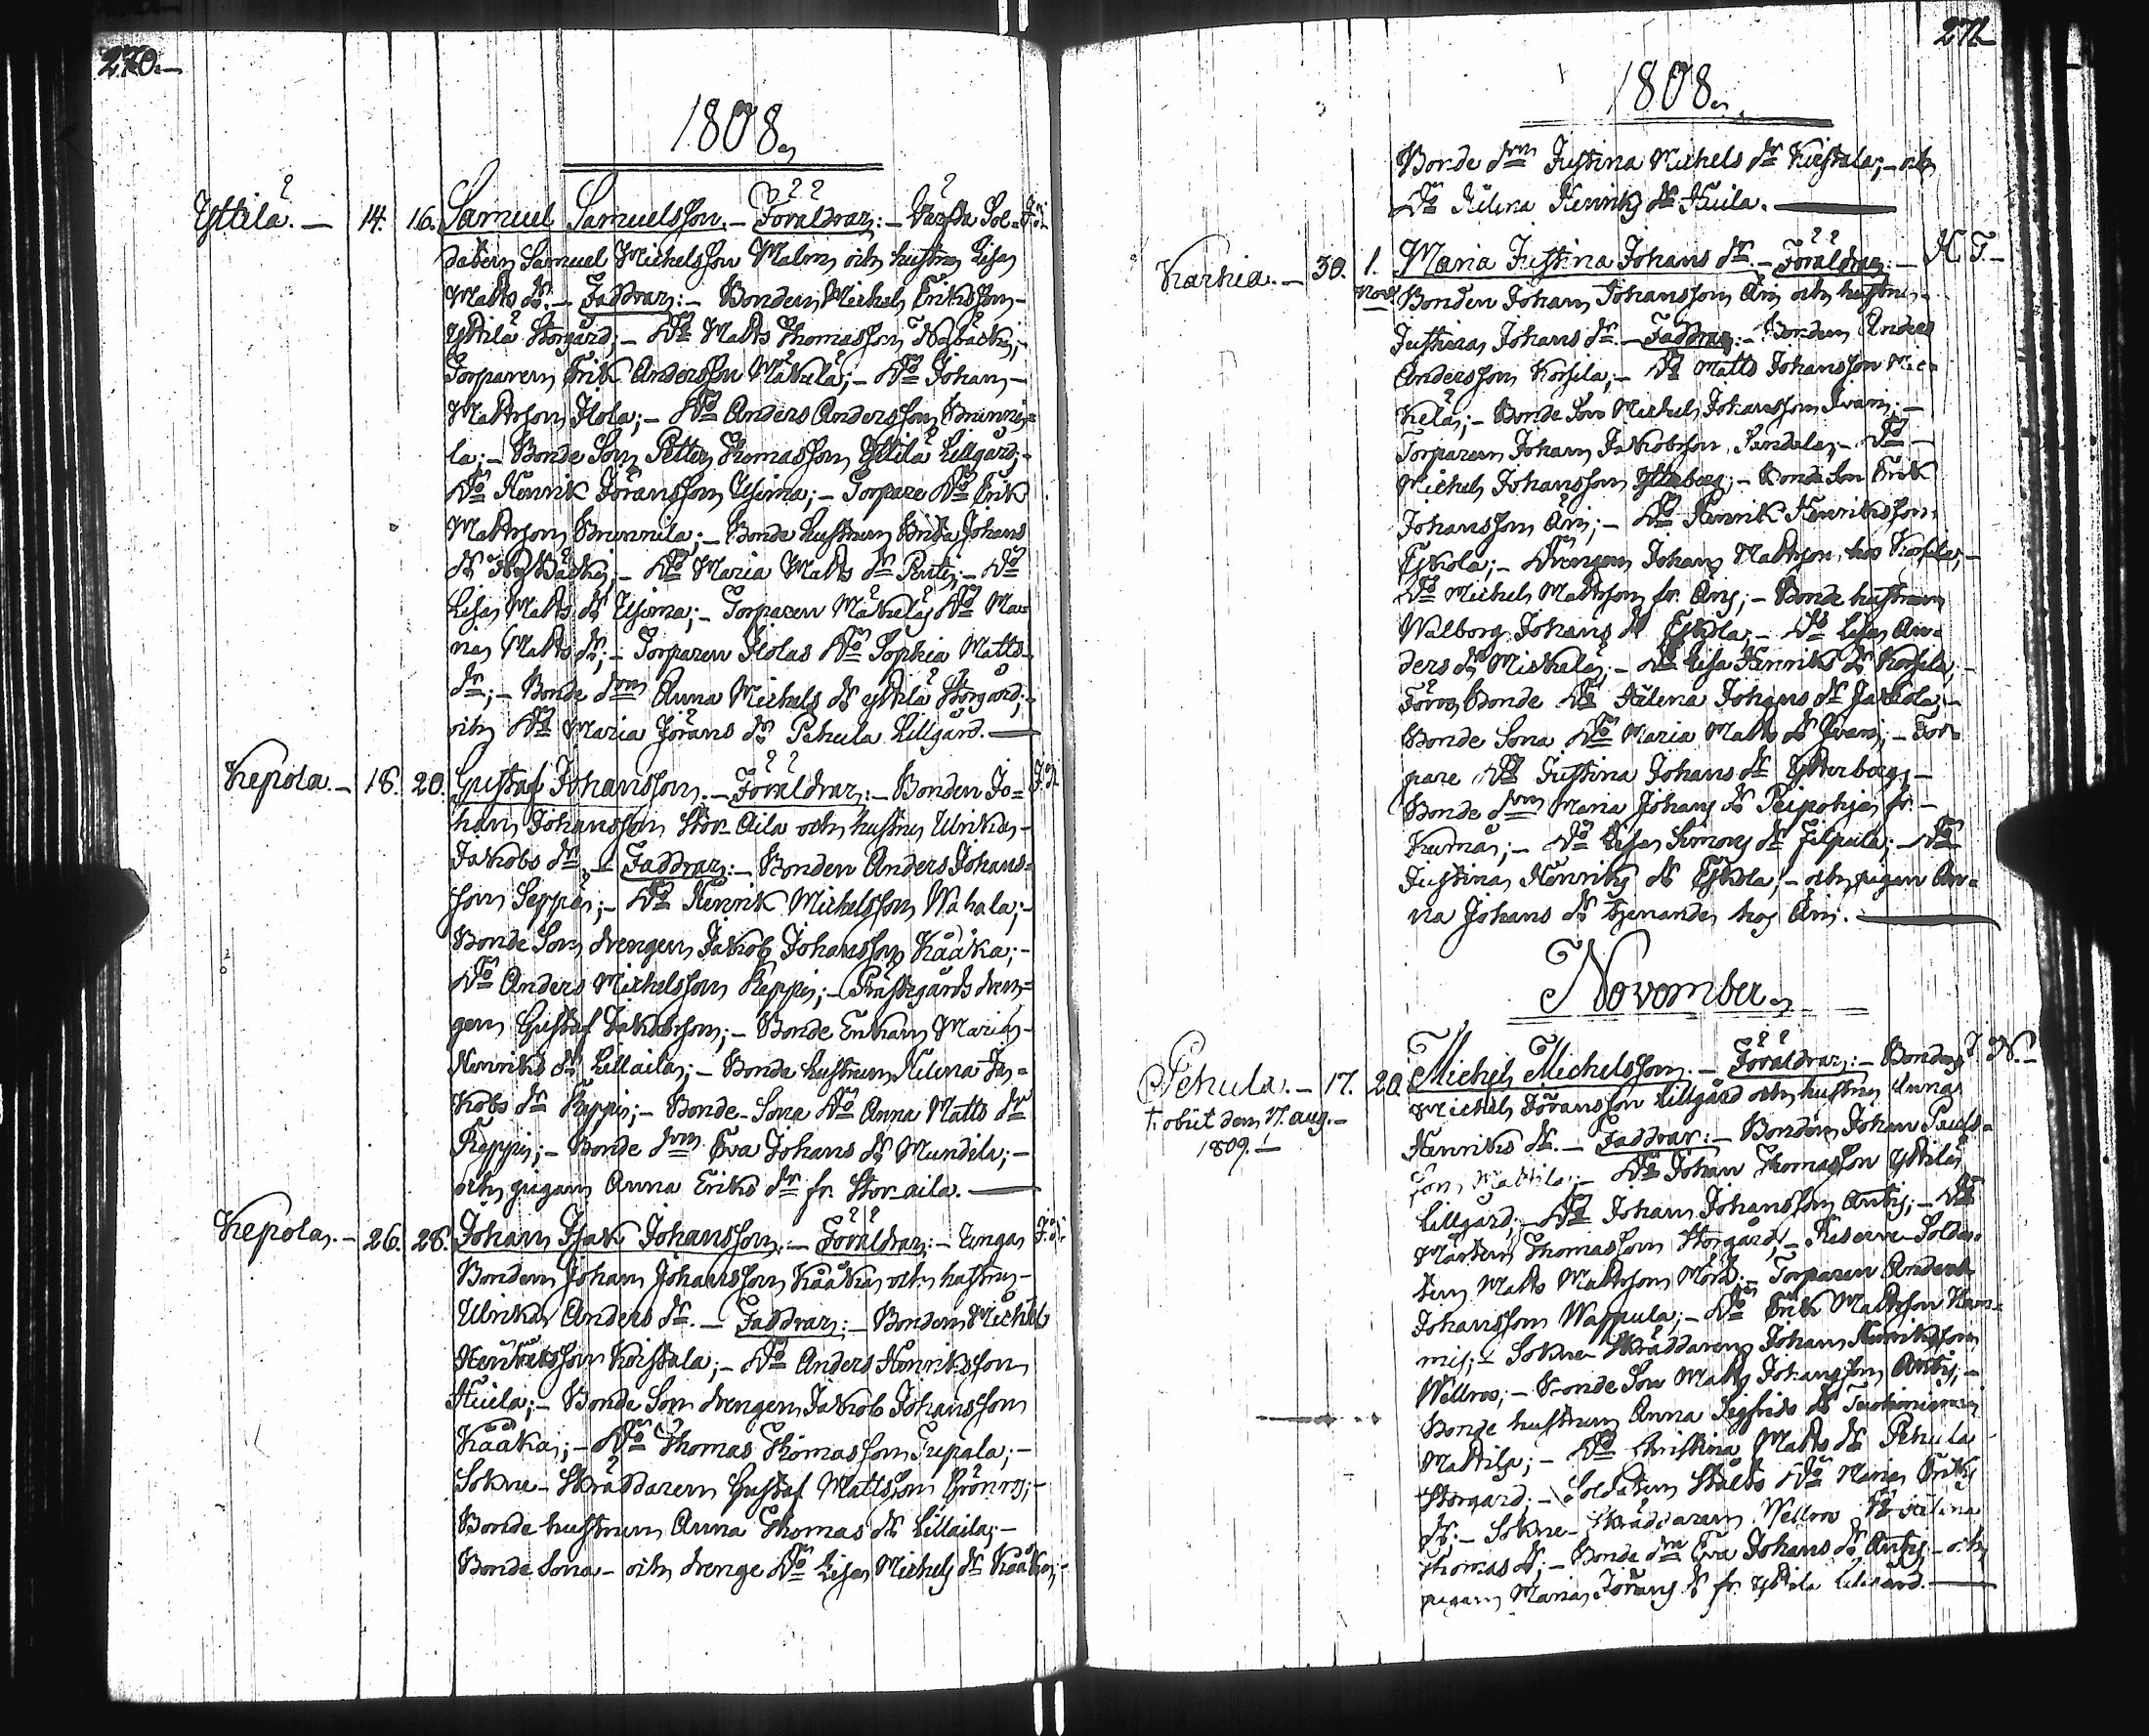 270.—
1808.
Yttilä. — 14. 16. Samuel Samuelsson. — Föräldrar: — Sol-
daten Samuel Michelsson Malm och hustru Lisa
Matts dr. — Faddrar: — Bonden Michel Eriksson
Yttilä Storgård; — Do Matts Thomasson
Torparen Erik Andersson Mäkelä; — Do Johan
Mattsson Ilola; — Do Anders Andersson Brunni-
la; — Bonde Son Petter Thomasson Yttilä Lillgård; —
Do Henrik Jöransson Uhima; — Torpare Do Erik
Mattsson Brunnila; — Bonde hustrun Brita Johans
dr — Do Maria Matts dr Penti; — Do
Lisa Matts dr Uhima; — Torparen Mäkeläs Do Ma-
ria Matts dr; — Torparen Ilolas Do Sophia Matts
dr; — Bonde drn Anna Michels dr Yttilä Storgård; —
och Do Maria Jörans dr Pehula Lillgård. —
Kepola. — 18. 20. Gustaf Johansson. — Föräldrar: — Bonden Jo-
han Johansson Stor Aila och hustru Ulrika
Jakobs dr. — Faddrar: — Bonden Anders Johans-
son Seppä; — Do Henrik Michelsson Wahala; —
Bonde Son drengen Jakob Johansson Kååka; —
Do Anders Michelsson Reppi; — Prästegårds dren-
gen Gustaf Jakobsson; — Bonde Enkan Maria
Henriks dr Lillaila; — Bonde hustrun Helena Ja-
kobs dr Reppi; — Bonde Sona Do Anna Matts dr
Reppi; — Bonde drn Eva Johans dr Mundila; —
och pigan Anna Eriks dr fr. Stor aila. —
Kepola. — 26. 28. Johan Isak Johansson. — Föräldrar: — Unga
Bonden Johan Johansson Kååka och hustru
Ulrika Anders dr. — Faddrar: — Bonden Michel
Henriksson Koistala; — Do Anders Henriksson
Huila; — Bonde Son drengen Jakob Johansson
Kååka; — Do Thomas Thomasson Trepala; —
Sokne-Skräddaren Gustaf Mattsson Grönroos; —
Bonde hustrun Anna Thomas dr Lillaila; —
Bonde Sona- och drenge Do Lisa Michels dr Kååka; —
271
1808.
Bonde drn Justina Michels dr Koistala; — och
Do Helena Henriks dr Huila. —
Karhia. — 30. 1. Maria Justina Johans dr. — Föräldrar: — H. F. —
Nov. Bonden Johan Johansson Äni och hustru
Justina Johans dr. — Faddrar: — Bonden Anders
Andersson Korsila; — Do Matts Johansson Mie-
kelä; — Bonde Son Michel Johansson Iivari; —
Torparen Johan Jakobsson Sundala; — Do
Michel Johansson Ytterborg; — Bonde Son Erik
Johansson Äni; — Do Henrik Henriksson
Eskola; — Drengen Johan Mattsson hos Korsila; —
Do Michel Mattsson fr. Äni; — Bonde hustrun
Walborg Johans dr Eskola; — Do Lisa An-
ders dr Miekelä; — Do Lisa Henriks dr Korsila; —
Bonde Do Helena Johans dr Jaakola; —
Bonde Sona Do Maria Matts dr Iivari; — Tor-
pare Do Justina Johans dr Ytterborg; —
Bonde drn Maria Johans dr Peipohja fr.
Kumå; — Do Lisa Simons dr Filpula; — Do
Justina Henriks dr Eskola; — och pigan An-
na Johans dr tjenande hos Äni. —
November.
Pehula. — 17. 20. Michel Michelsson. — Föräldrar: — Bonden J. N. —
† obiit den 17. aug. —
1809. —
Michel Jöransson Lillgård och hustru Anna
Henriks dr. — Faddrar: — Bonden Johan Pauls-
son Mattila; — Do Johan Thomasson Yttilä
Lillgård; — Do Johan Johansson Anti; — Do
Mårten Thomasson Storgård; — Reserve Solda-
ten Matts Mattsson Mörk; — Torparen Anders
Johansson Wappula; — Do Erik Mattsson
Sokne Skräddaren Johan Henriksson
Wellroos; — Bonde Son Matts Johansson Anti; —
Bonde hustrun Anna Sigfrids dr
Mattila; — Do Christina Matts dr Pehula
Storgård; — Soldaten Do Maria Eriks
dr; — Sokne-Skräddaren Wellroos Do Helena
Thomas dr; — Bonde drn Eva Johans dr Anti; — och
pigan Maria Jörans dr fr. Yttilä Lillgård. —